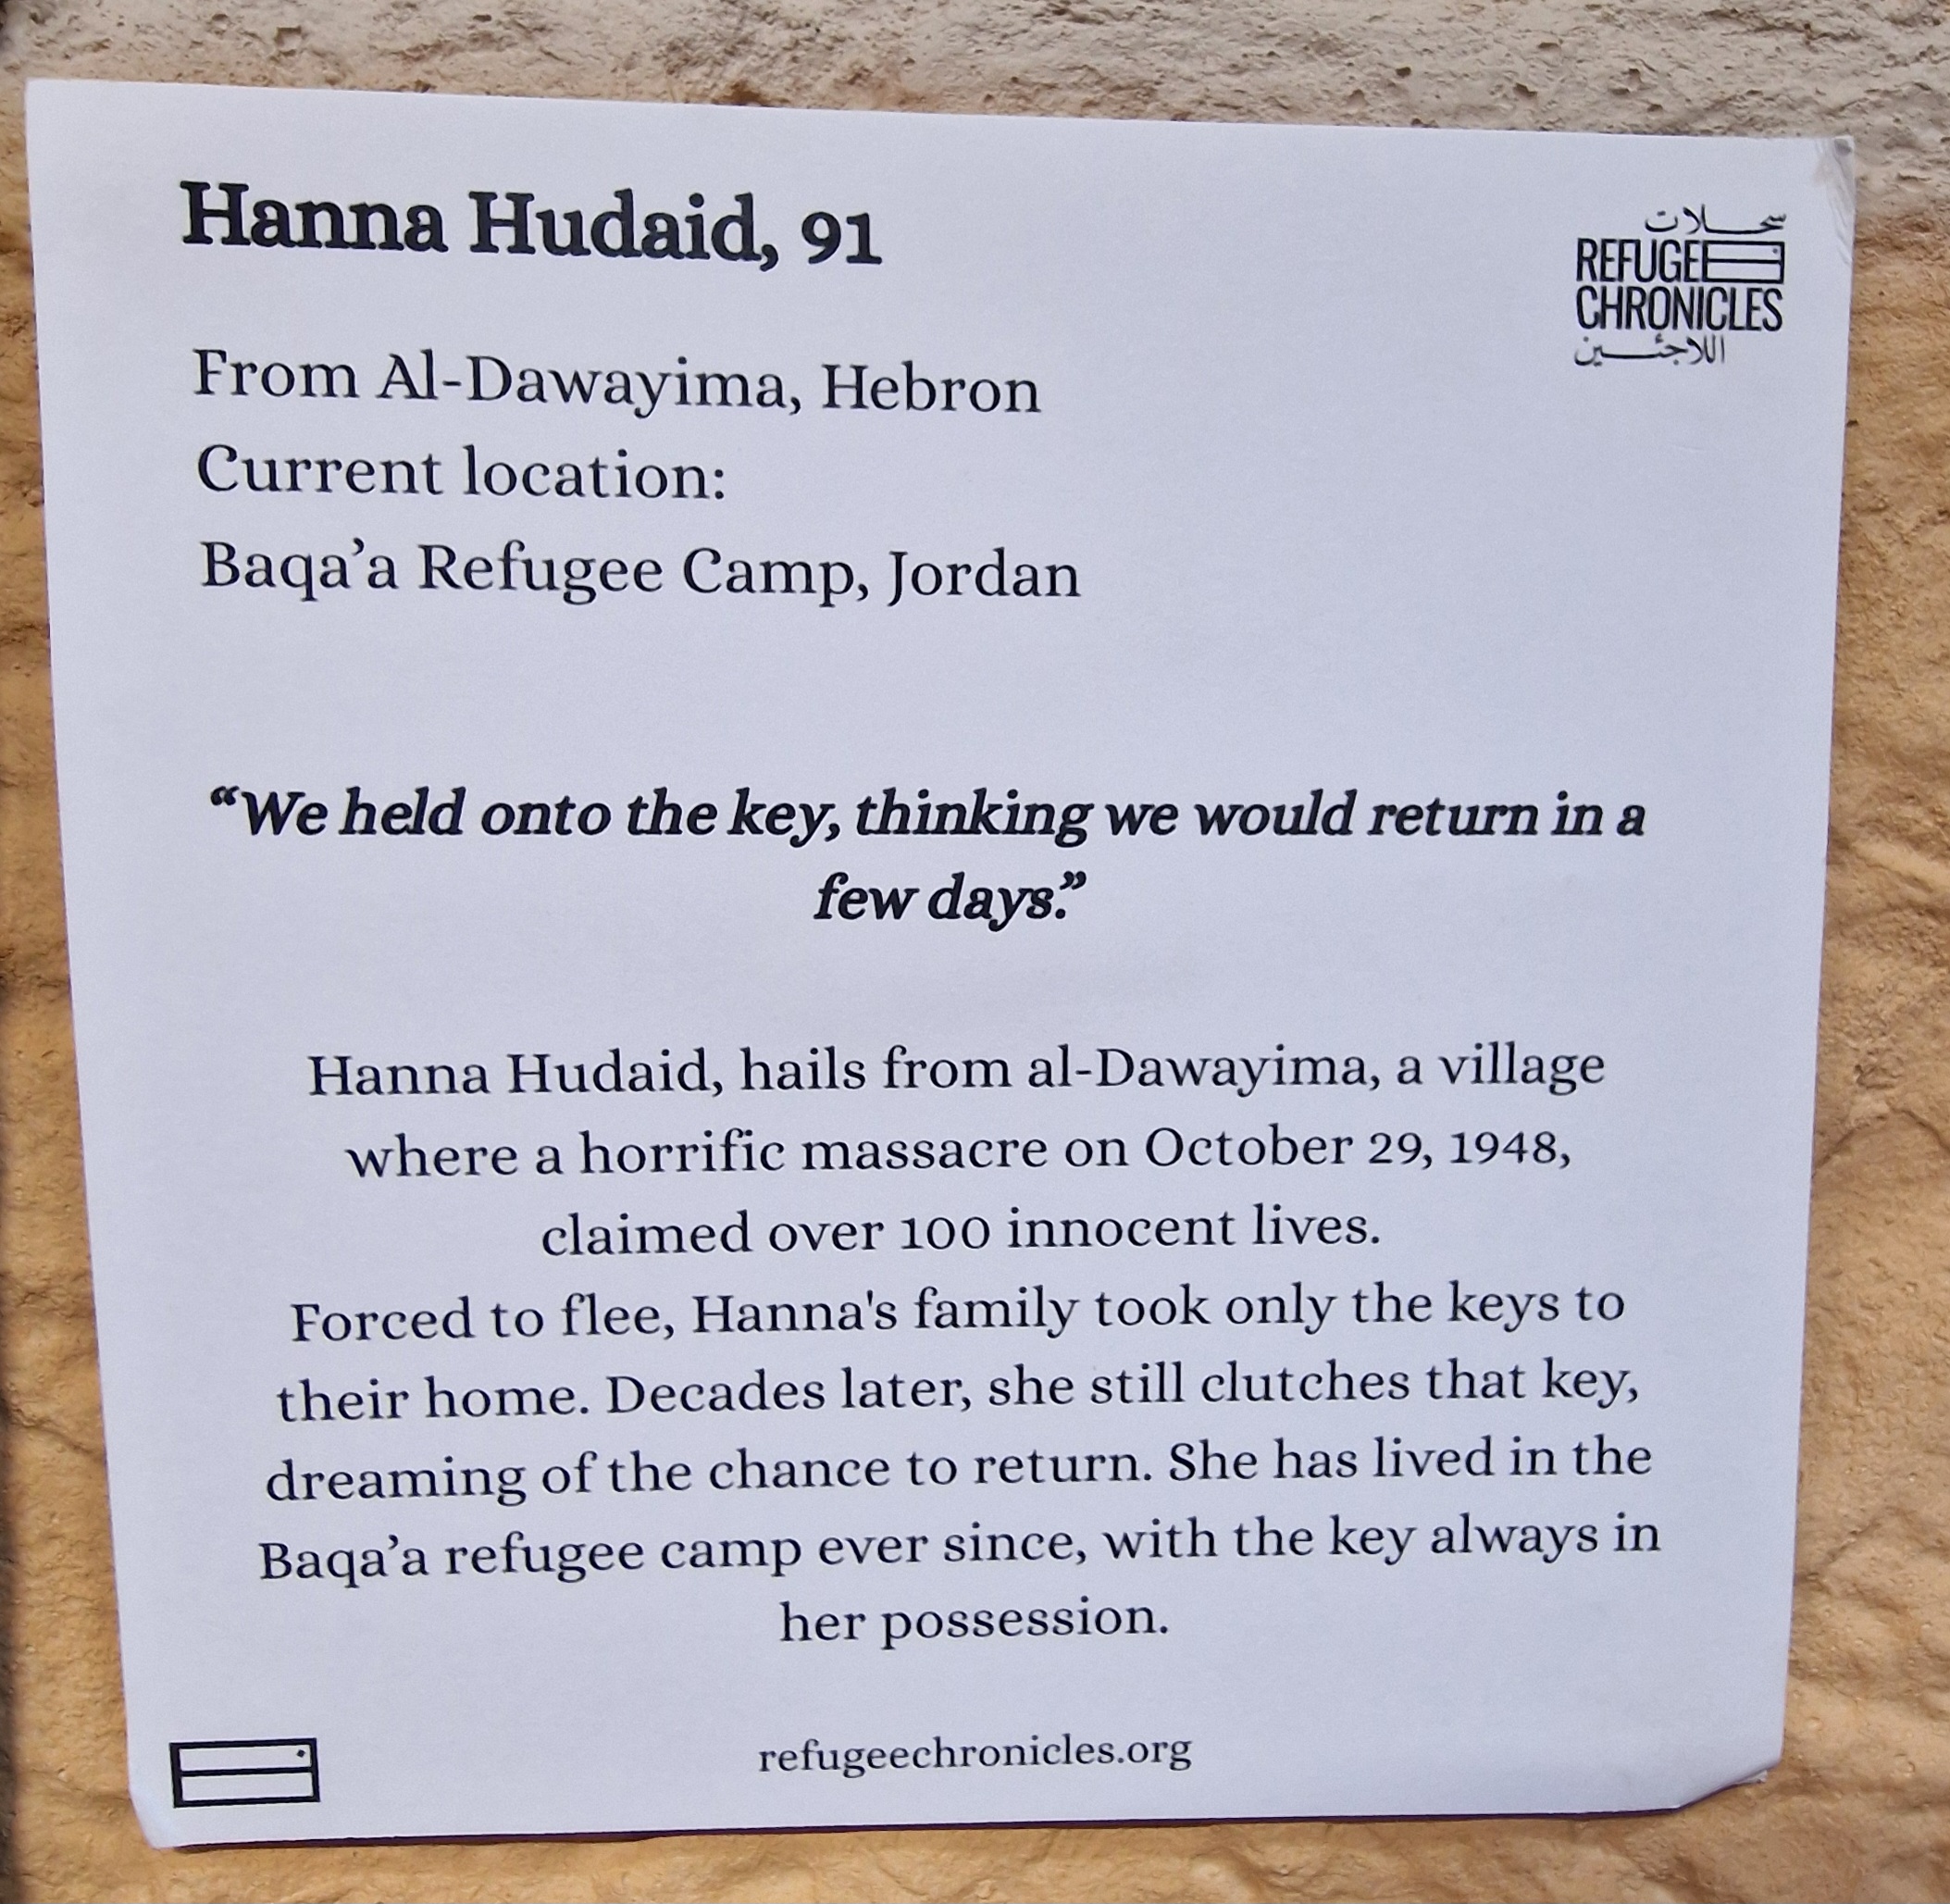 Hanna Hudaid, 91
سجلات
REFUGEE
CHRONICLES
اللاجئين
From Al-Dawayima, Hebron
Current location:
Baqa’a Refugee Camp, Jordan
“We held onto the key, thinking we would return in a
few days.”
Hanna Hudaid, hails from al-Dawayima, a village
where a horrific massacre on October 29, 1948,
claimed over 100 innocent lives.
Forced to flee, Hanna's family took only the keys to
their home. Decades later, she still clutches that key,
dreaming of the chance to return. She has lived in the
Baqa’a refugee camp ever since, with the key always in
her possession.
refugeechronicles.org